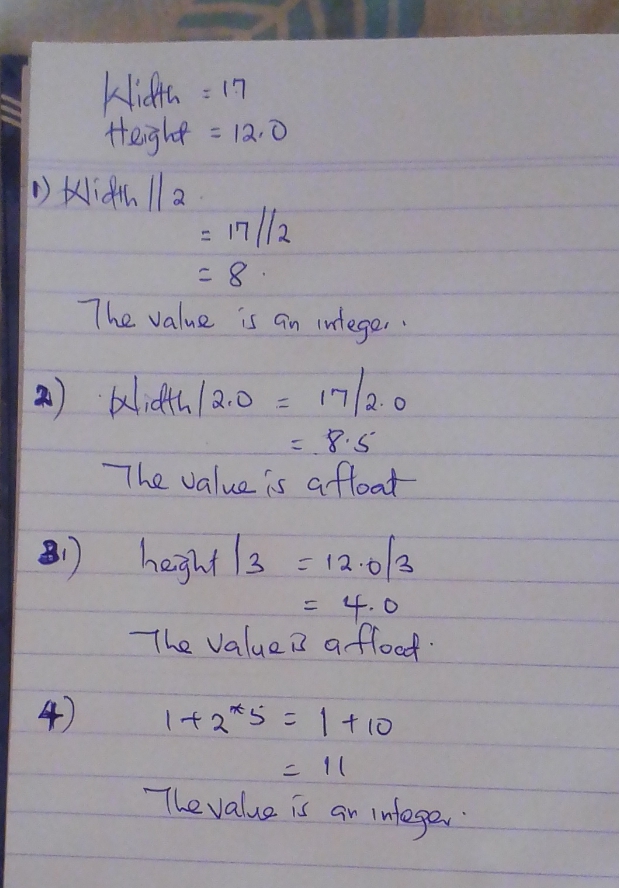 Width = 17
Height = 12.0
1) Width // 2
= 17//2
= 8.
The value is an integer.
2) Width / 2.0 = 17/2.0
= 8.5
The value is a float
3.) height / 3 = 12.0/3
= 4.0
The value is a float.
4) 1 + 2*5 = 1 + 10
= 11
The value is an integer.